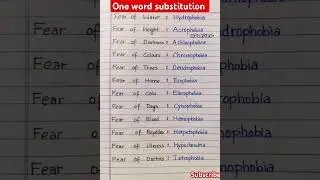 One word substitution
Fear of Water : Hydrophobia
Fear of Height : Acrophobia
Fear of Darkness : Achluophobia
Fear of Colours : Chromophobia
Fear of Trees : Dendrophobia
Fear of Home : Ecophobia
Fear of Cats : Elurophobia
Fear of Dogs : Cynophobia
Fear of Blood : Hemophobia
Fear of Reptiles : Herpetophobia
Fear of Illness : Hypochondria
Fear of Doctors : Iatrophobia
Subscribe